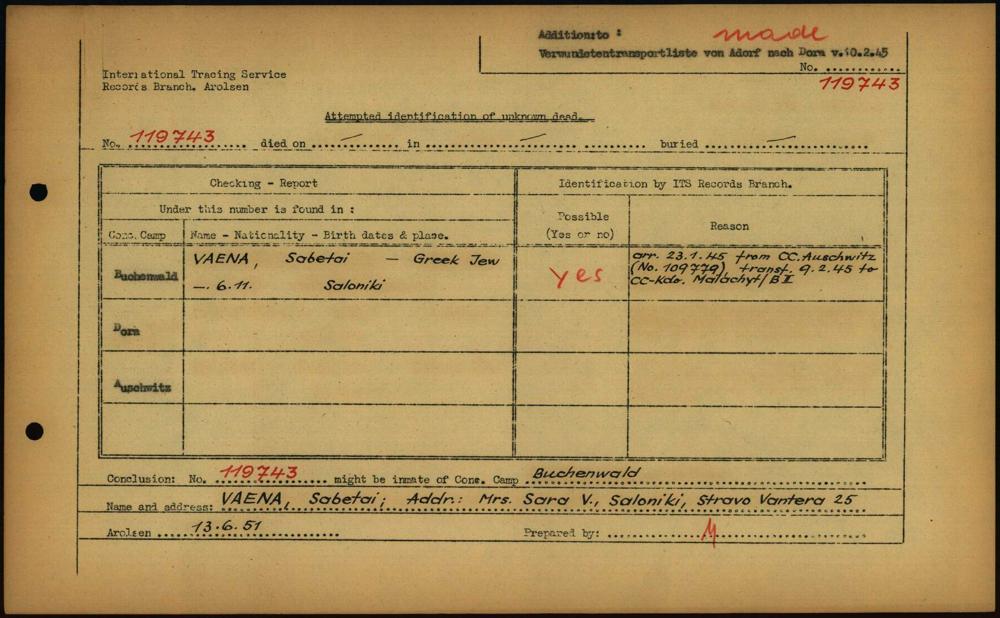 Addition:to : made
Verwundetentransportliste von Adorf nach Dora v.10.2.45
No. ............
119743
International Tracing Service
Records Branch. Arolsen
Attempted identification of unknown dead.
No. 119743 died on ..... — ..... in ..... — ..... buried ..... — .....
Checking - Report
Identification by ITS Records Branch.
Under this number is found in :
Possible
(Yes or no)
Reason
Conc. Camp
Name - Nationality - Birth dates & place.
Buchenwald
VAENA, Sabetai — Greek Jew
—. 6.11. Saloniki
yes
arr. 23.1.45 from CC. Auschwitz
(No. 109779), transf. 9.2.45 to
CC-Kdo. Malachyt/B II
Dora
Auschwitz
Conclusion: No. 119743 might be inmate of Conc. Camp Buchenwald
Name and address: VAENA, Sabetai; Addr.: Mrs. Sara V., Saloniki, Stravo Vantera 25
Arolsen 13.6.51 Prepared by: ............